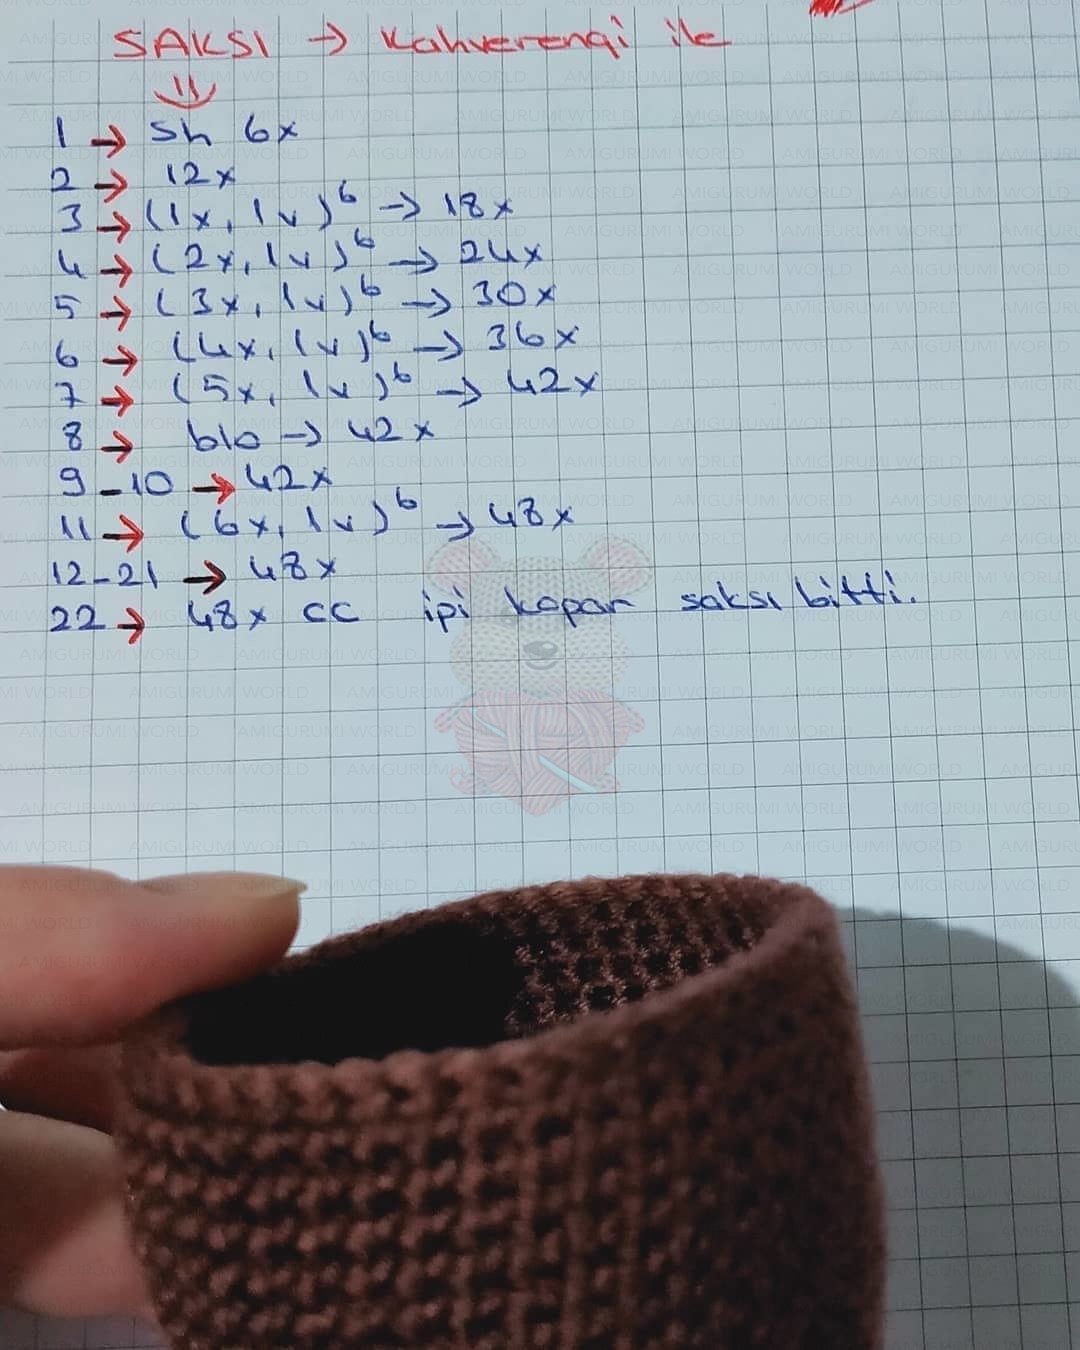 SAKSI → Kahverengi ile
1 → sh 6x
2 → 12x
3 → (1x, 1v)⁶ → 18x
4 → (2x, 1v)⁶ → 24x
5 → (3x, 1v)⁶ → 30x
6 → (4x, 1v)⁶ → 36x
7 → (5x, 1v)⁶ → 42x
8 → blo → 42x
9-10 → 42x
11 → (6x, 1v)⁶ → 48x
12-21 → 48x
22 → 48x cc ipi kopar saksı bitti.
AMIGURUMI WORLD